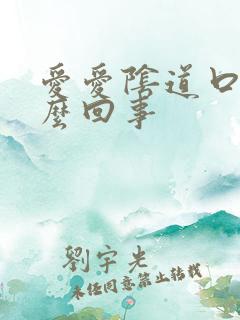 愛愛陰道口
麼回事
劉宇光
未経同意禁止転載